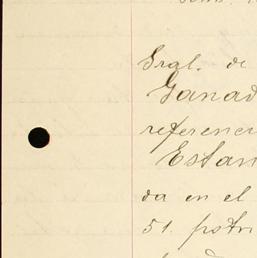 Gral. de
Ganad
referenci
Estan
da en el
51. potri